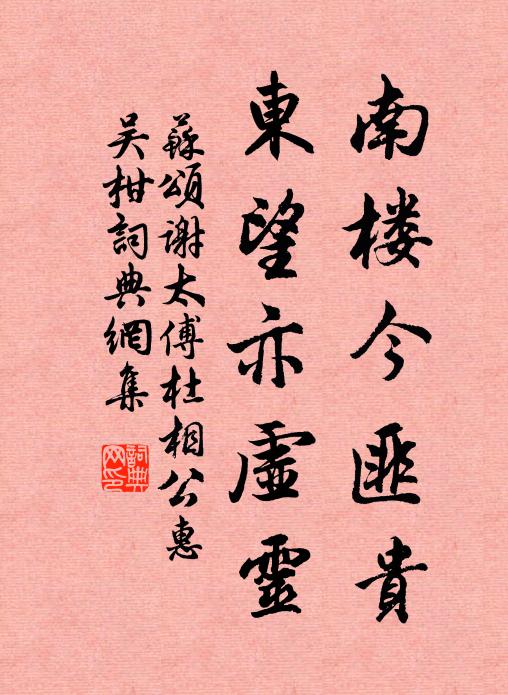 南楼今匪貴
東望亦虛靈
蘇頌謝太傅杜相公惠
吴柑詞典網集
詞典網印